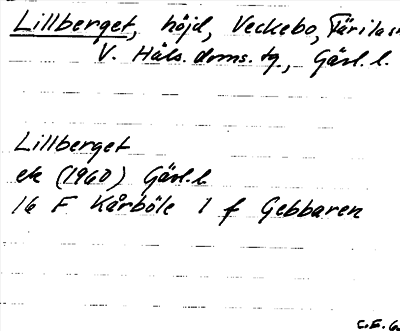 Lillberget, höjd, Veckebo, Färila sn
V. Häls. doms. tg., Gävl. l.
Lillberget
ek (1960) Gävl. l.
16 F Kårböle 1 f Gebbaren
C.E.G.